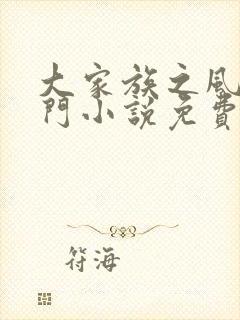 大家族之風
門小說免費
符海